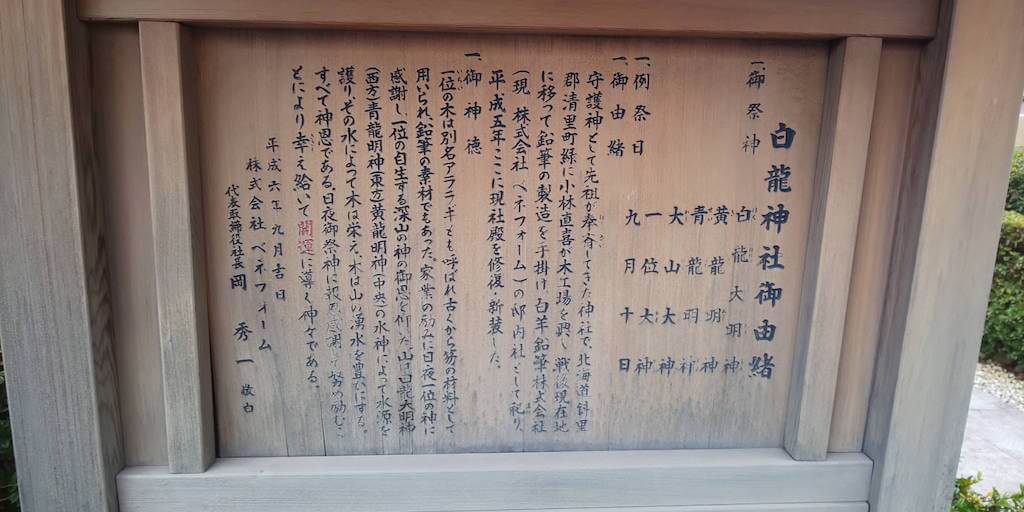 白龍神社御由緒
一、御祭神
白龍大明神
黄龍明神
青龍明神
大山大神
一位大神
一、例祭日
九月十日
一、御由緒
守護神として先祖が奉斎してきた神社で、北海道斜里
郡清里町緑に小林直喜が木工場を興し、戦後現在地
に移って鉛筆の製造を手掛け白羊鉛筆株式会社
(現 株式会社 ベネフォーム)の邸内社として祀り、
平成五年、ここに現社殿を修復・新装した。
一、御神徳
一位の木は別名アララギとも呼ばれ古くから笏の材料として
用いられ、鉛筆の素材でもあった。家業の励みに日夜一位の神に
感謝し、一位の自生する深山の神の御恩を仰いだ。山は白龍大明神
(西方)青龍明神(東方)黄龍明神(中央)の水神によって水源を
護り、その水によって木は栄え、木は山の湧水を豊かにする。
すべて神恩である。日夜御祭神に報恩感謝し努め励むこ
とにより幸え給いて開運に導く神々である。
平成六年九月吉日
株式会社 ベネフォーム
代表取締役社長 岡 秀一 敬白